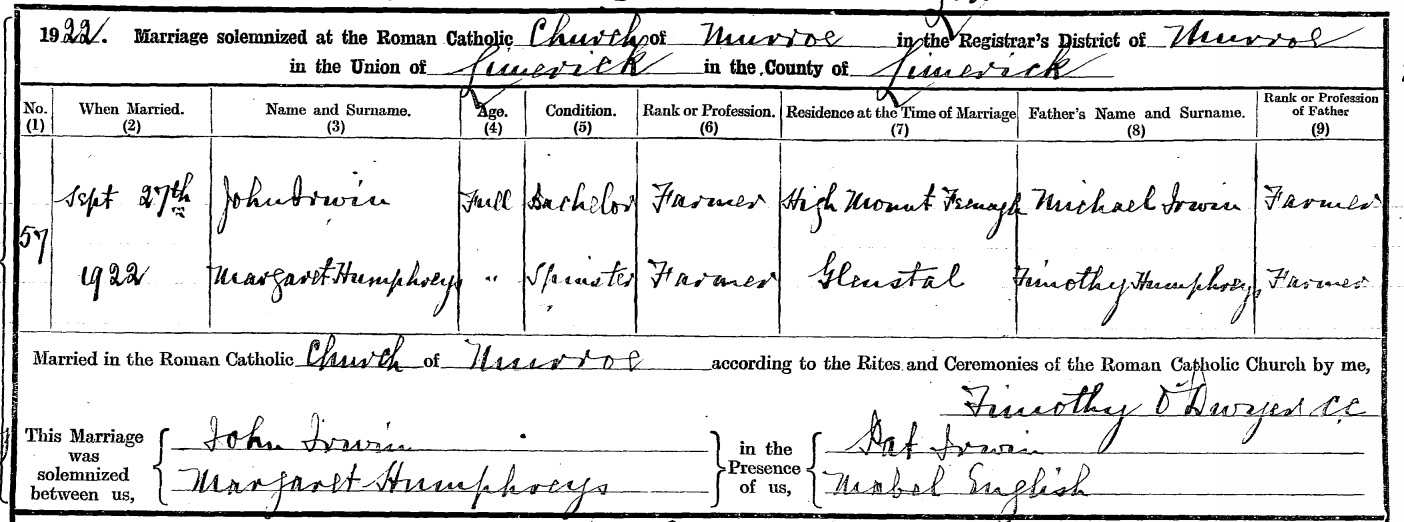 1922. Marriage solemnized at the Roman Catholic Church of Murroe in the Registrar's District of Murroe
in the Union of Limerick in the County of Limerick
No. When Married. Name and Surname. Age. Condition. Rank or Profession. Residence at the Time of Marriage Father's Name and Surname. Rank or Profession of Father
(1) (2) (3) (4) (5) (6) (7) (8) (9)
Sept 27th John Irwin Full Bachelor Farmer High Mount Feenagh Michael Irwin Farmer
57
1922 Margaret Humphreys " Spinster Farmer Glenstal Timothy Humphreys Farmer
Married in the Roman Catholic Church of Murroe according to the Rites and Ceremonies of the Roman Catholic Church by me,
Timothy O'Dwyer CC
This Marriage was solemnized between us,
John Irwin
Margaret Humphreys
in the Presence of us,
Pat Irwin
Mabel English